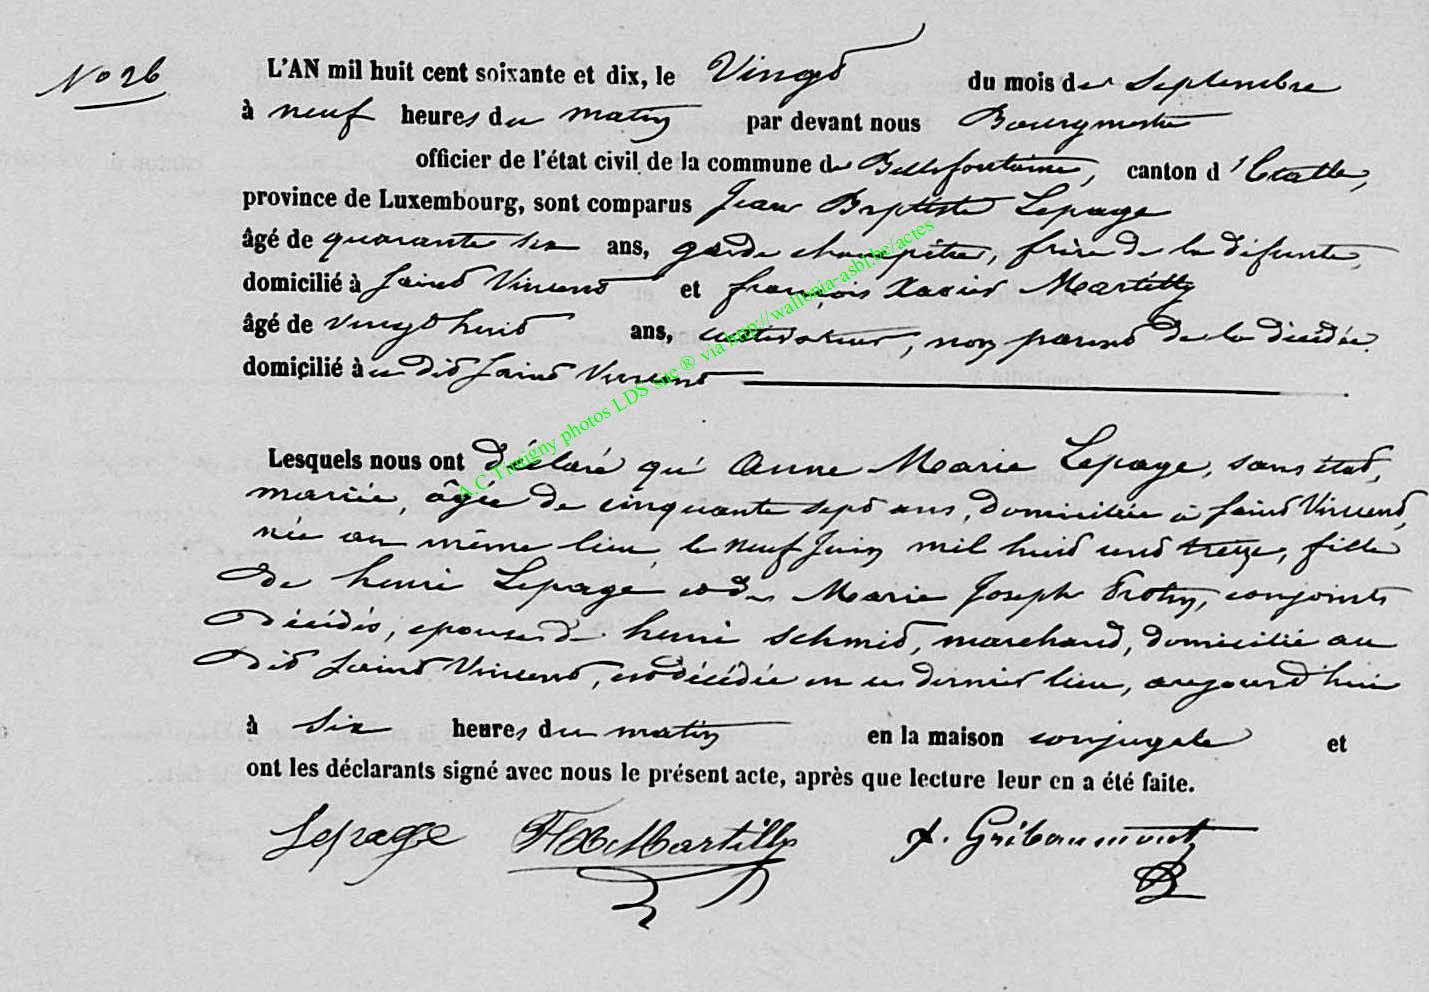 No 26
L'AN mil huit cent soixante et dix, le Vingt du mois de Septembre
à neuf heures du matin par devant nous Bourgmestre
officier de l'état civil de la commune de Bellefontaine, canton d'Etalle,
province de Luxembourg, sont comparus Jean Baptiste Lepage
âgé de quarante six ans, garde champêtre, frère de la défunte,
domicilié à Saint Vincent et françois Xavier Martilly
âgé de vingt huit ans, cultivateur, non parent de la décédée
domicilié à u dit Saint Vincent
Lesquels nous ont déclaré qu' Anne Marie Lepage, sans état,
mariée, âgée de cinquante sept ans, domiciliée à Saint Vincent,
née au même lieu, le neuf Juin mil huit cent treize, fille
de henri Lepage et de Marie Joseph conjoints
décédés, epouse de henri Schmid, marchand, domicilié au
dit Saint Vincent, est décédée en ce dernier lieu, aujourd'hui
à six heures du matin en la maison conjugale et
ont les déclarants signé avec nous le présent acte, après que lecture leur en a été faite.
Lepage FX Martilly A. Gribaumont
A.C.Tintigny photos LDS site ® via http://wallonia-asbl.be/actes